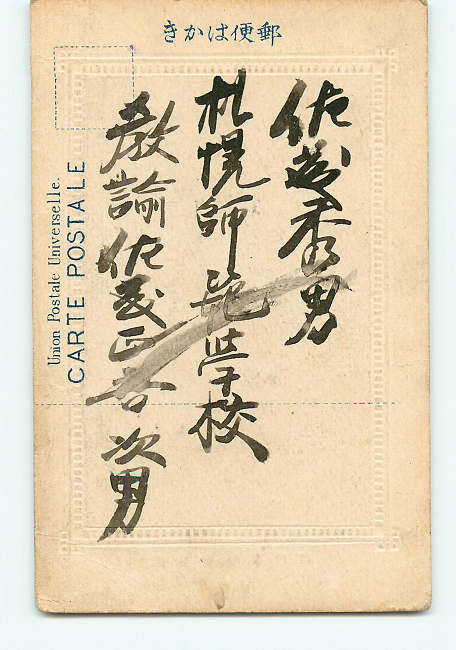 郵便はかき
Union Postale Universelle.
CARTE POSTALE
佐 秀男
札幌師範學校
教諭佐 正 次男